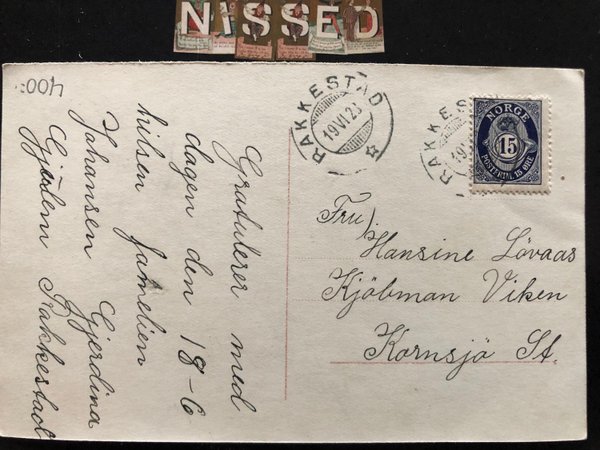 NISSED
400:-
RAKKESTAD
19 VI 23
RAKKES
19
NORGE
15
POSTFRIM. 15 ØRE
Gratulerer med
dagen den 18-6
hilsen familien
Johansen Gjerdina
Gjölem Rakkestad
Fru/.
Hansine Lövaas
Kjöbman Viken
Kornsjö St.